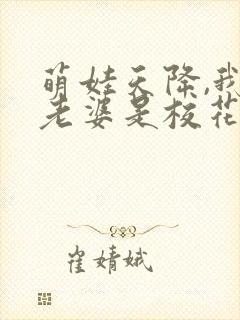 萌娃天降,我
老婆是校花
崔婧娥